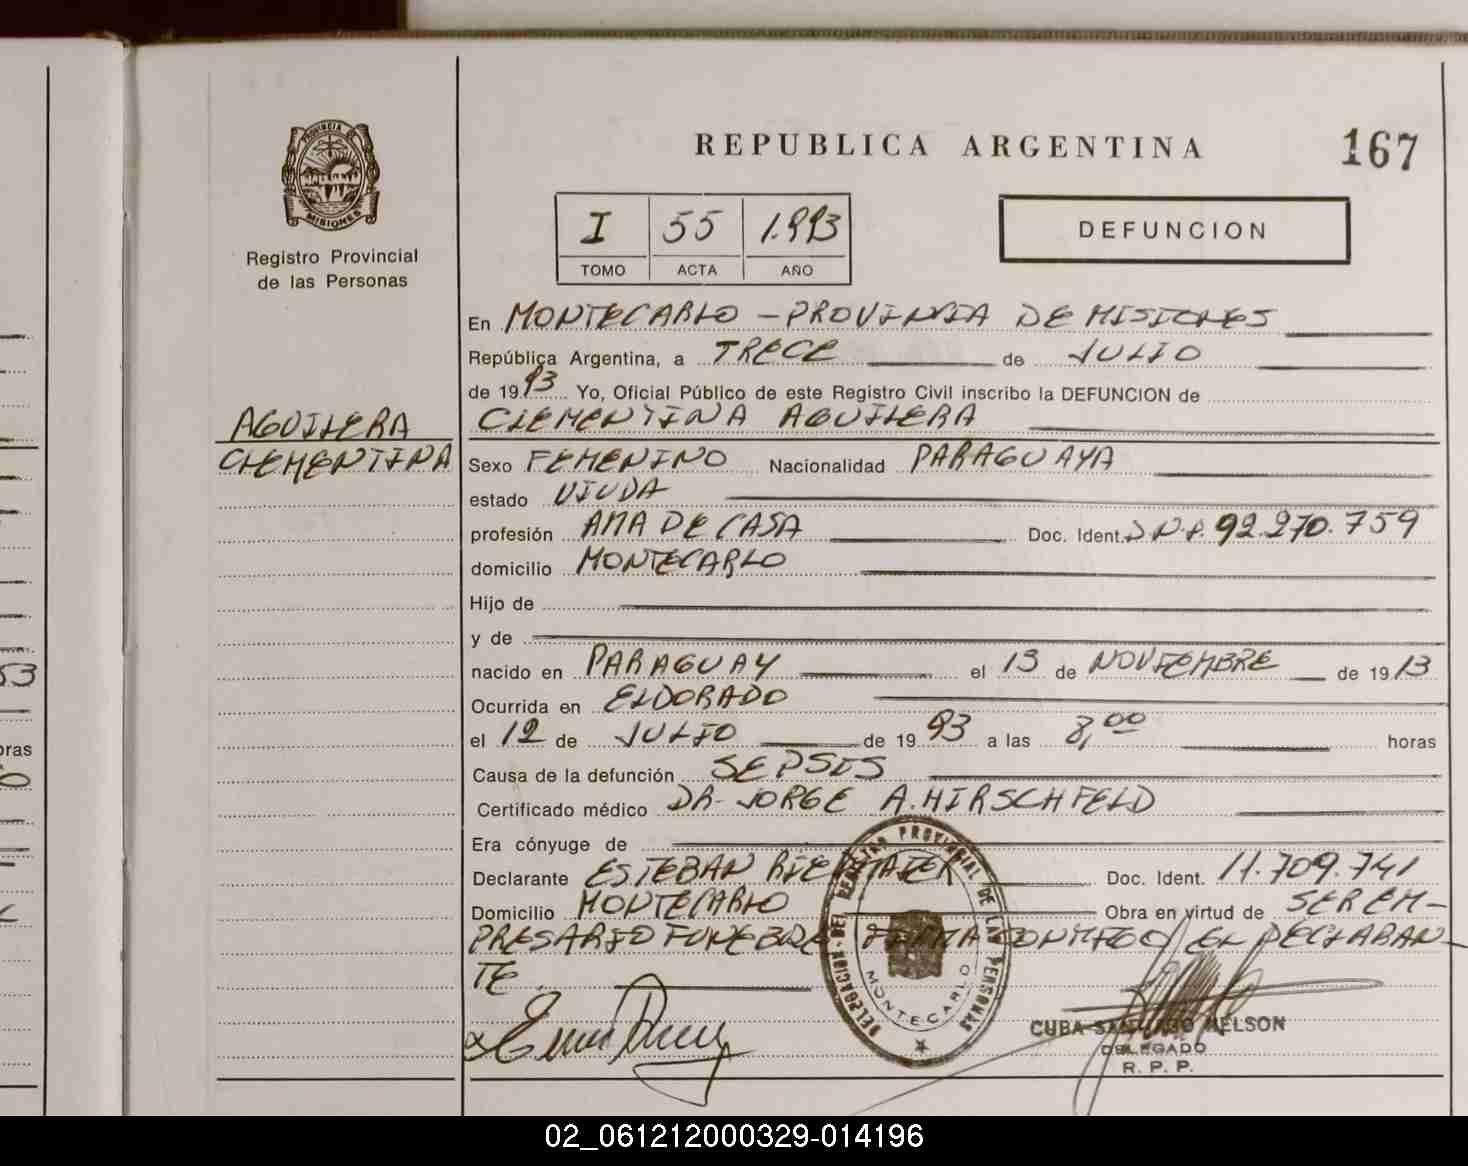 PROVINCIA DE
MISIONES
Registro Provincial
de las Personas
AGUILERA
CLEMENTINA
REPUBLICA ARGENTINA
167
I 55 1.993
TOMO ACTA AÑO
DEFUNCION
En MONTECARLO - PROVINCIA DE MISIONES
República Argentina, a TRECE de JULIO
de 1993 Yo, Oficial Público de este Registro Civil inscribo la DEFUNCION de
CLEMENTINA AGUILERA
Sexo FEMENINO Nacionalidad PARAGUAYA
estado VIUDA
profesión AMA DE CASA Doc. Ident. D.N.I. 92.270.759
domicilio MONTECARLO
Hijo de
y de
nacido en PARAGUAY el 13 de NOVIEMBRE de 1913
Ocurrida en ELDORADO
el 12 de JULIO de 1993 a las 8,00 horas
Causa de la defunción SEPSIS
Certificado médico DR. JORGE A. HIRSCHFELD
Era cónyuge de
Declarante ESTEBAN Doc. Ident. 11.709.741
Domicilio MONTECARLO Obra en virtud de SER EM-
PRESARIO FUNEBRE FIRMA CONMIGO EL DECLARAN-
TE
DELEGACION DEL REGISTRO PROVINCIAL DE LAS PERSONAS
MONTECARLO
CUBA SANTIAGO NELSON
DELEGADO
R. P. P.
53
oras
02_061212000329-014196